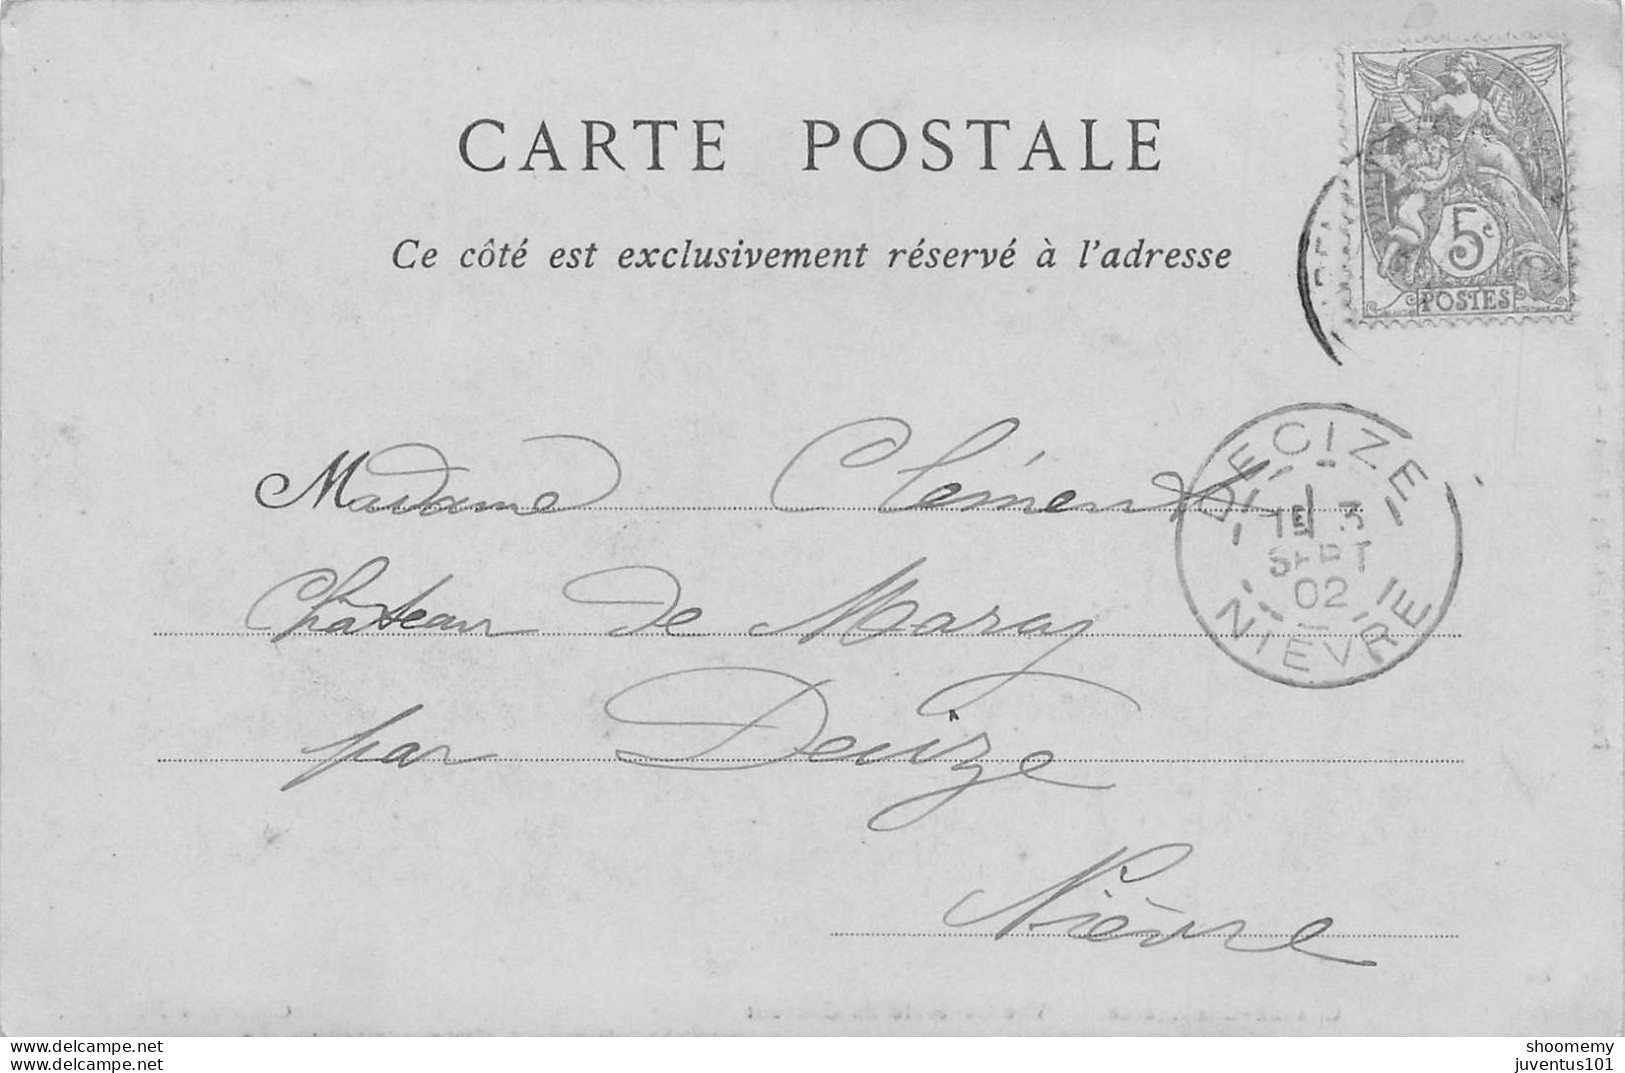 CARTE POSTALE
Ce côté est exclusivement réservé à l'adresse
5c
POSTES
DECIZE
3
SEPT
02
NIEVRE
Madame Clément
Château de Maray
par Decize
Nièvre
www.delcampe.net
www.delcampe.net
shoomemy
juventus101